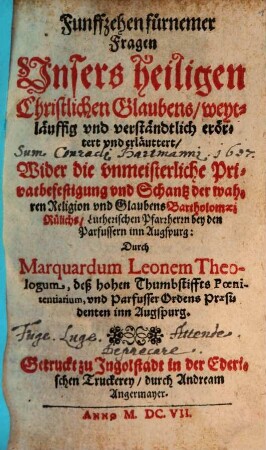 Funffzehen fürnemer
Fragen
Vnsers heiligen
Christlichen Glaubens/ weyt-
läuffig vnd verständtlich erör-
tert vnd erläuttert/
Sum Conradi Hartmanni 1637.
Wider die vnmeisterliche Pri-
vatbefestigung vnd Schantz der wah-
ren Religion vnd Glaubens Bartholomæi
Rülichs/ Lutherischen Pfarzherrn bey den
Parfussern inn Augspurg:
Durch
Marquardum Leonem Theo-
logum, deß hohen Thumbstiffts Pœni-
tentiarium, vnd Parfusser Ordens Præsi-
denten inn Augspurg.
Fuge. Luge. Attende.
Deprecare.
Getruckt zu Ingolstadt in der Ederi-
schen Truckerey/ durch Andream
Angermayer.
ANNO M. DC. VII.